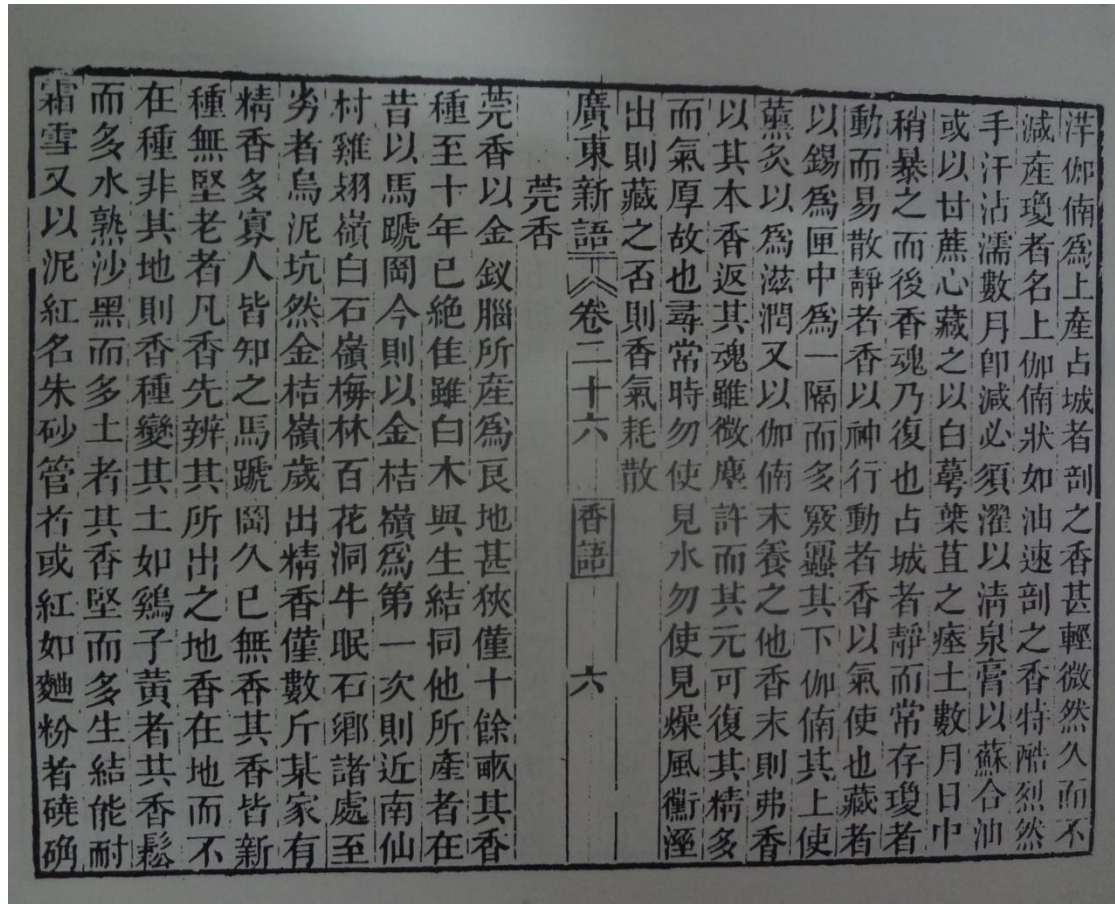 洋伽㑲爲上產占城者剖之香甚輕微然久而不
減產瓊者名上伽㑲狀如油速剖之香特酷烈然
手汗沾濡數月卽減必須濯以淸泉膏以蘇合油
或以甘蔗心藏之以白蕚葉苴之瘞土數月日中
稍暴之而後香魂乃復也占城者靜而常存瓊者
動而易散靜者香以神行動者香以氣使也藏者
以錫爲匣中爲一隔而多竅蠠其下伽㑲其上使
薰炙以爲滋潤又以伽㑲末養之他香末則弗香
以其本香返其魂雖微塵許而其元可復其精多
而氣厚故也尋常時勿使見水勿使見燥風黴溼
出則藏之否則香氣耗散
廣東新語 卷二十六 香語 六
莞香
莞香以金釵腦所產爲良地甚狹僅十餘畝其香
種至十年已絶佳雖白木與生結同他所產者在
昔以馬蹏岡今則以金桔嶺爲第一次則近南仙
村雞翅嶺白石嶺梅林百花洞牛眠石鄕諸處至
劣者烏泥坑然金桔嶺歲出精香僅數斤某家有
精香多寡人皆知之馬蹏岡久已無香其香皆新
種無堅老者凡香先辨其所出之地香在地而不
在種非其地則香種變其土如鷄子黃者其香鬆
而多水熟沙黑而多土者其香堅而多生結能耐
霜雪又以泥紅名朱砂管者或紅如麯粉者磽确